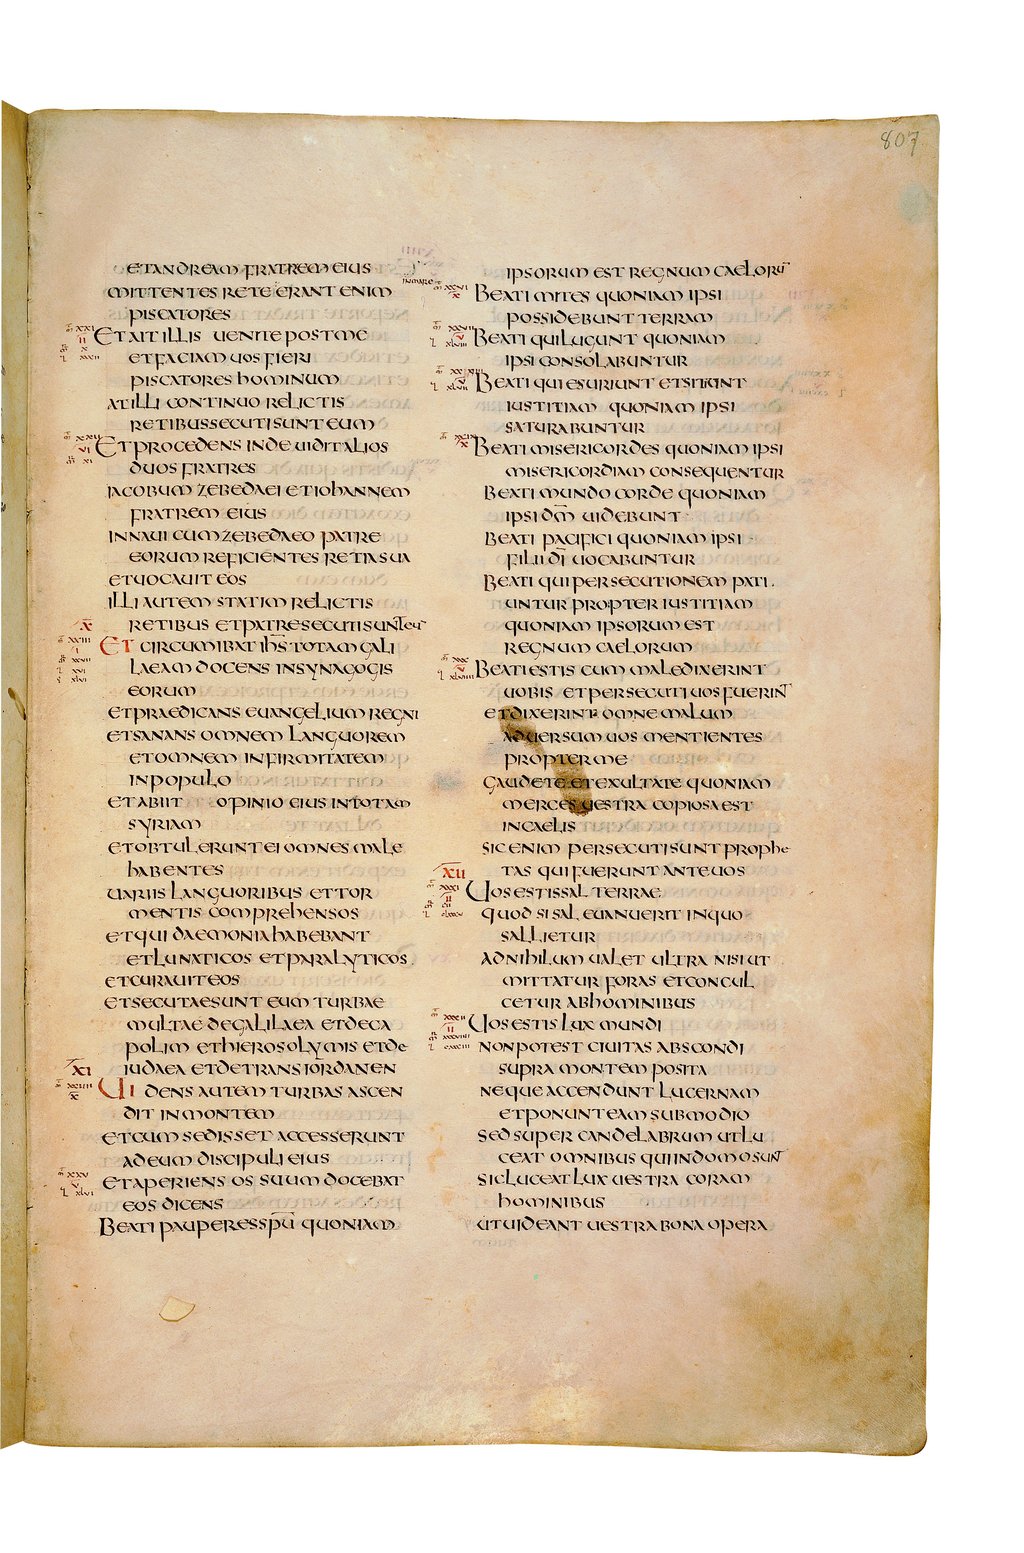 807
ET ANDREAM FRATREM EIUS
MITTENTES RETE ERANT ENIM
PISCATORES
ET AIT ILLIS UENITE POST ME
ET FACIAM UOS FIERI
PISCATORES HOMINUM
AT ILLI CONTINUO RELICTIS
RETIBUS SECUTI SUNT EUM
ET PROCEDENS INDE UIDIT ALIOS
DUOS FRATRES
IACOBUM ZEBEDAEI ET IOHANNEM
FRATREM EIUS
IN NAUI CUM ZEBEDAEO PATRE
EORUM REFICIENTES RETIA SUA
ET UOCAUIT EOS
ILLI AUTEM STATIM RELICTIS
X̅ RETIBUS ET PATRE SECUTI SUNT EU̅
ET CIRCUMIBAT IH̅S TOTAM GALI
LAEAM DOCENS IN SYNAGOGIS
EORUM
ET PRAEDICANS EUANGELIUM REGNI
ET SANANS OMNEM LANGUOREM
ET OMNEM INFIRMITATEM
IN POPULO
ET ABIIT OPINIO EIUS IN TOTAM
SYRIAM
ET OBTULERUNT EI OMNES MALE
HABENTES
UARIIS LANGUORIBUS ET TOR
MENTIS COMPREHENSOS
ET QUI DAEMONIA HABEBANT
ET LUNATICOS ET PARALYTICOS
ET CURAUIT EOS
ET SECUTAE SUNT EUM TURBAE
MULTAE DE GALILAEA ET DECA
POLIM ET HIEROSOLYMIS ET DE
XI IUDAEA ET DE TRANS IORDANEN
UIDENS AUTEM TURBAS ASCEN
DIT IN MONTEM
ET CUM SEDISSET ACCESSERUNT
AD EUM DISCIPULI EIUS
ET APERIENS OS SUUM DOCEBAT
EOS DICENS
BEATI PAUPERES SPU̅ QUONIAM
IPSORUM EST REGNUM CAELORU̅
BEATI MITES QUONIAM IPSI
POSSIDEBUNT TERRAM
BEATI QUI LUGUNT QUONIAM
IPSI CONSOLABUNTUR
BEATI QUI ESURIUNT ET SITIUNT
IUSTITIAM QUONIAM IPSI
SATURABUNTUR
BEATI MISERICORDES QUONIAM IPSI
MISERICORDIAM CONSEQUENTUR
BEATI MUNDO CORDE QUONIAM
IPSI DM̅ UIDEBUNT
BEATI PACIFICI QUONIAM IPSI
FILII DI̅ UOCABUNTUR
BEATI QUI PERSECUTIONEM PATI
UNTUR PROPTER IUSTITIAM
QUONIAM IPSORUM EST
REGNUM CAELORUM
BEATI ESTIS CUM MALEDIXERINT
UOBIS ET PERSECUTI UOS FUERINT
ET DIXERINT OMNE MALUM
ADUERSUM UOS MENTIENTES
PROPTER ME
GAUDETE ET EXULTATE QUONIAM
MERCES UESTRA COPIOSA EST
IN CAELIS
SIC ENIM PERSECUTI SUNT PROPHE
XII TAS QUI FUERUNT ANTE UOS
UOS ESTIS SAL TERRAE
QUOD SI SAL EUANUERIT IN QUO
SALLIETUR
AD NIHILUM UALET ULTRA NISI UT
MITTATUR FORAS ET CONCUL
CETUR AB HOMINIBUS
UOS ESTIS LUX MUNDI
NON POTEST CIUITAS ABSCONDI
SUPRA MONTEM POSITA
NEQUE ACCENDUNT LUCERNAM
ET PONUNT EAM SUB MODIO
SED SUPER CANDELABRUM UT LU
CEAT OMNIBUS QUI IN DOMO SUNT
SIC LUCEAT LUX UESTRA CORAM
HOMINIBUS
UT UIDEANT UESTRA BONA OPERA